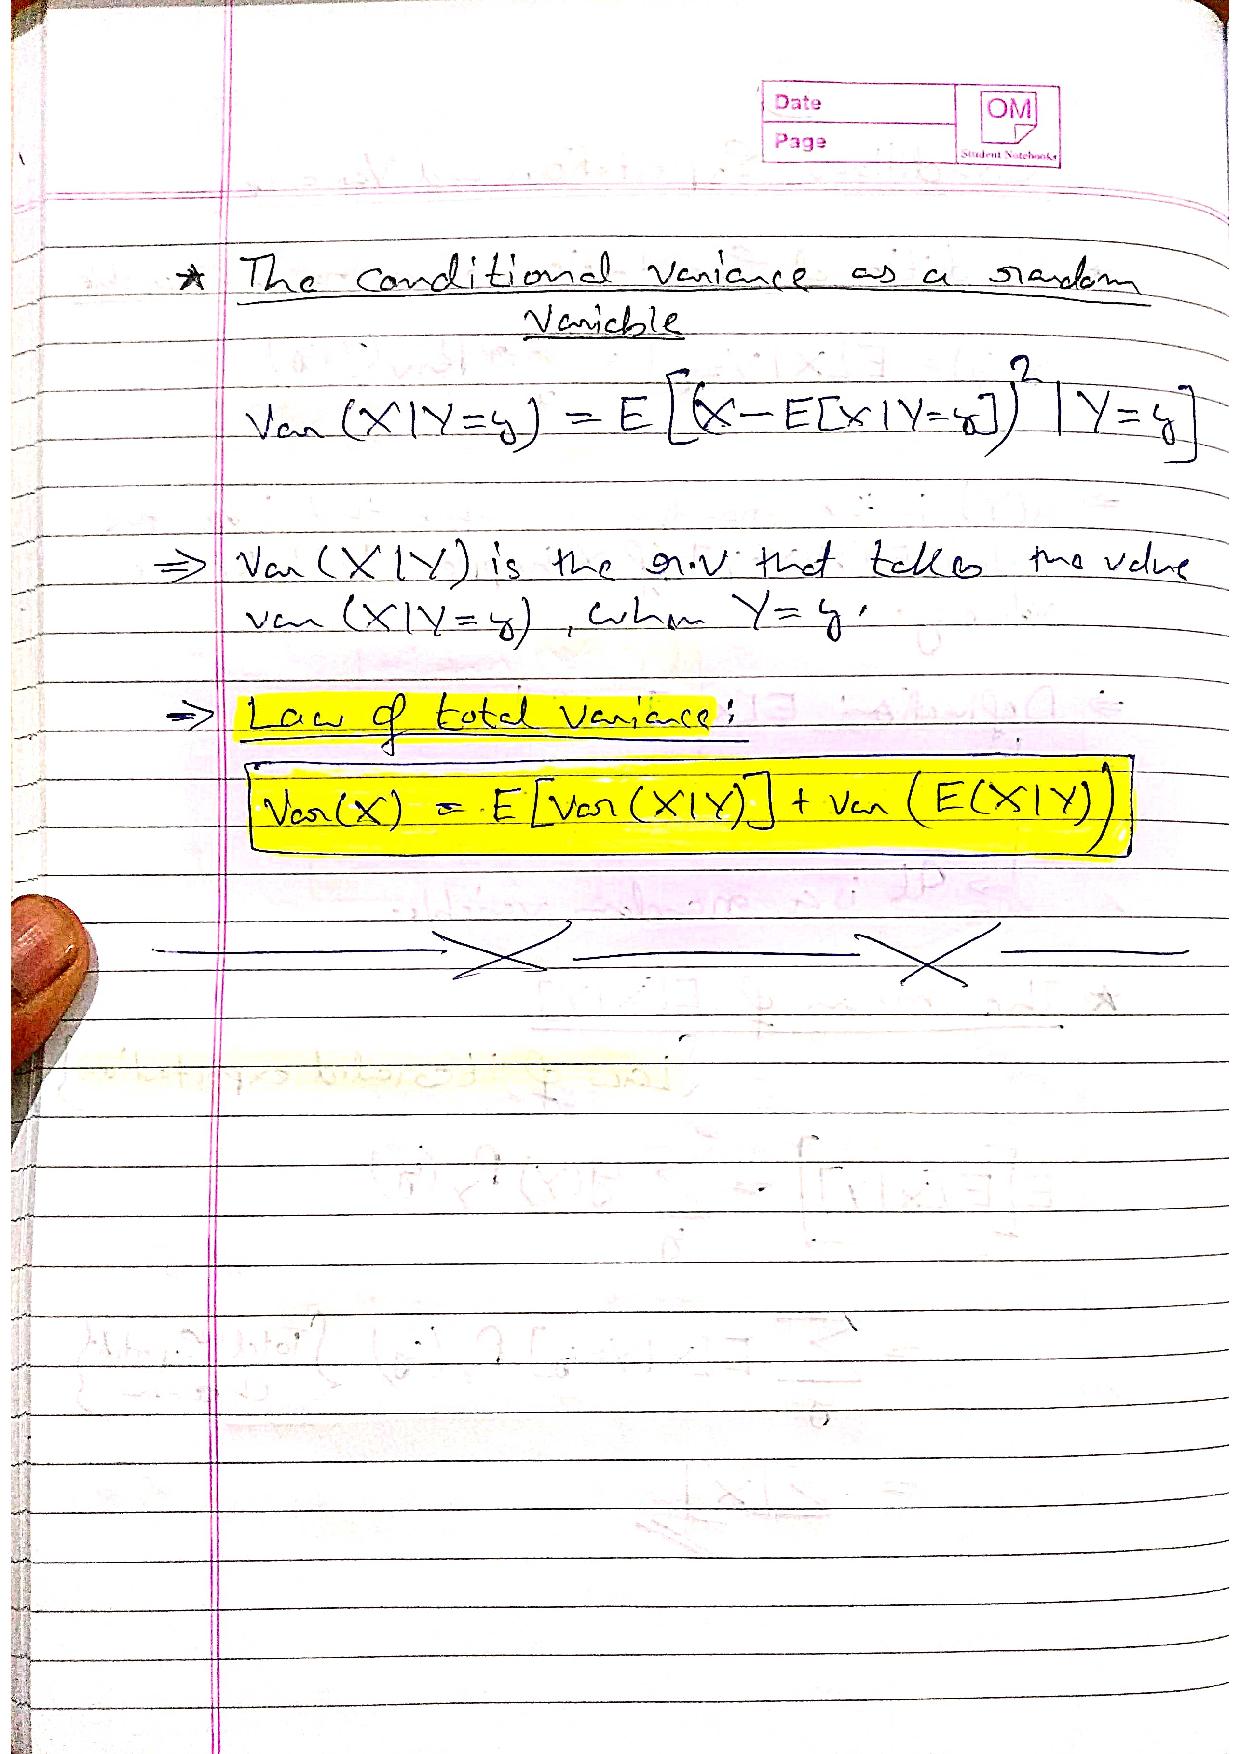 Date
OM
Page
Student Notebooks
* The conditional variance as a random
variable
Var (X|Y=y) = E [(X-E[X|Y=y])² | Y=y]
⇒ Var (X|Y) is the r.v that takes the value
var (X|Y=y), when Y=y.
⇒ Law of total variance:
Var(X) = E [Var (X|Y)] + Var (E(X|Y))